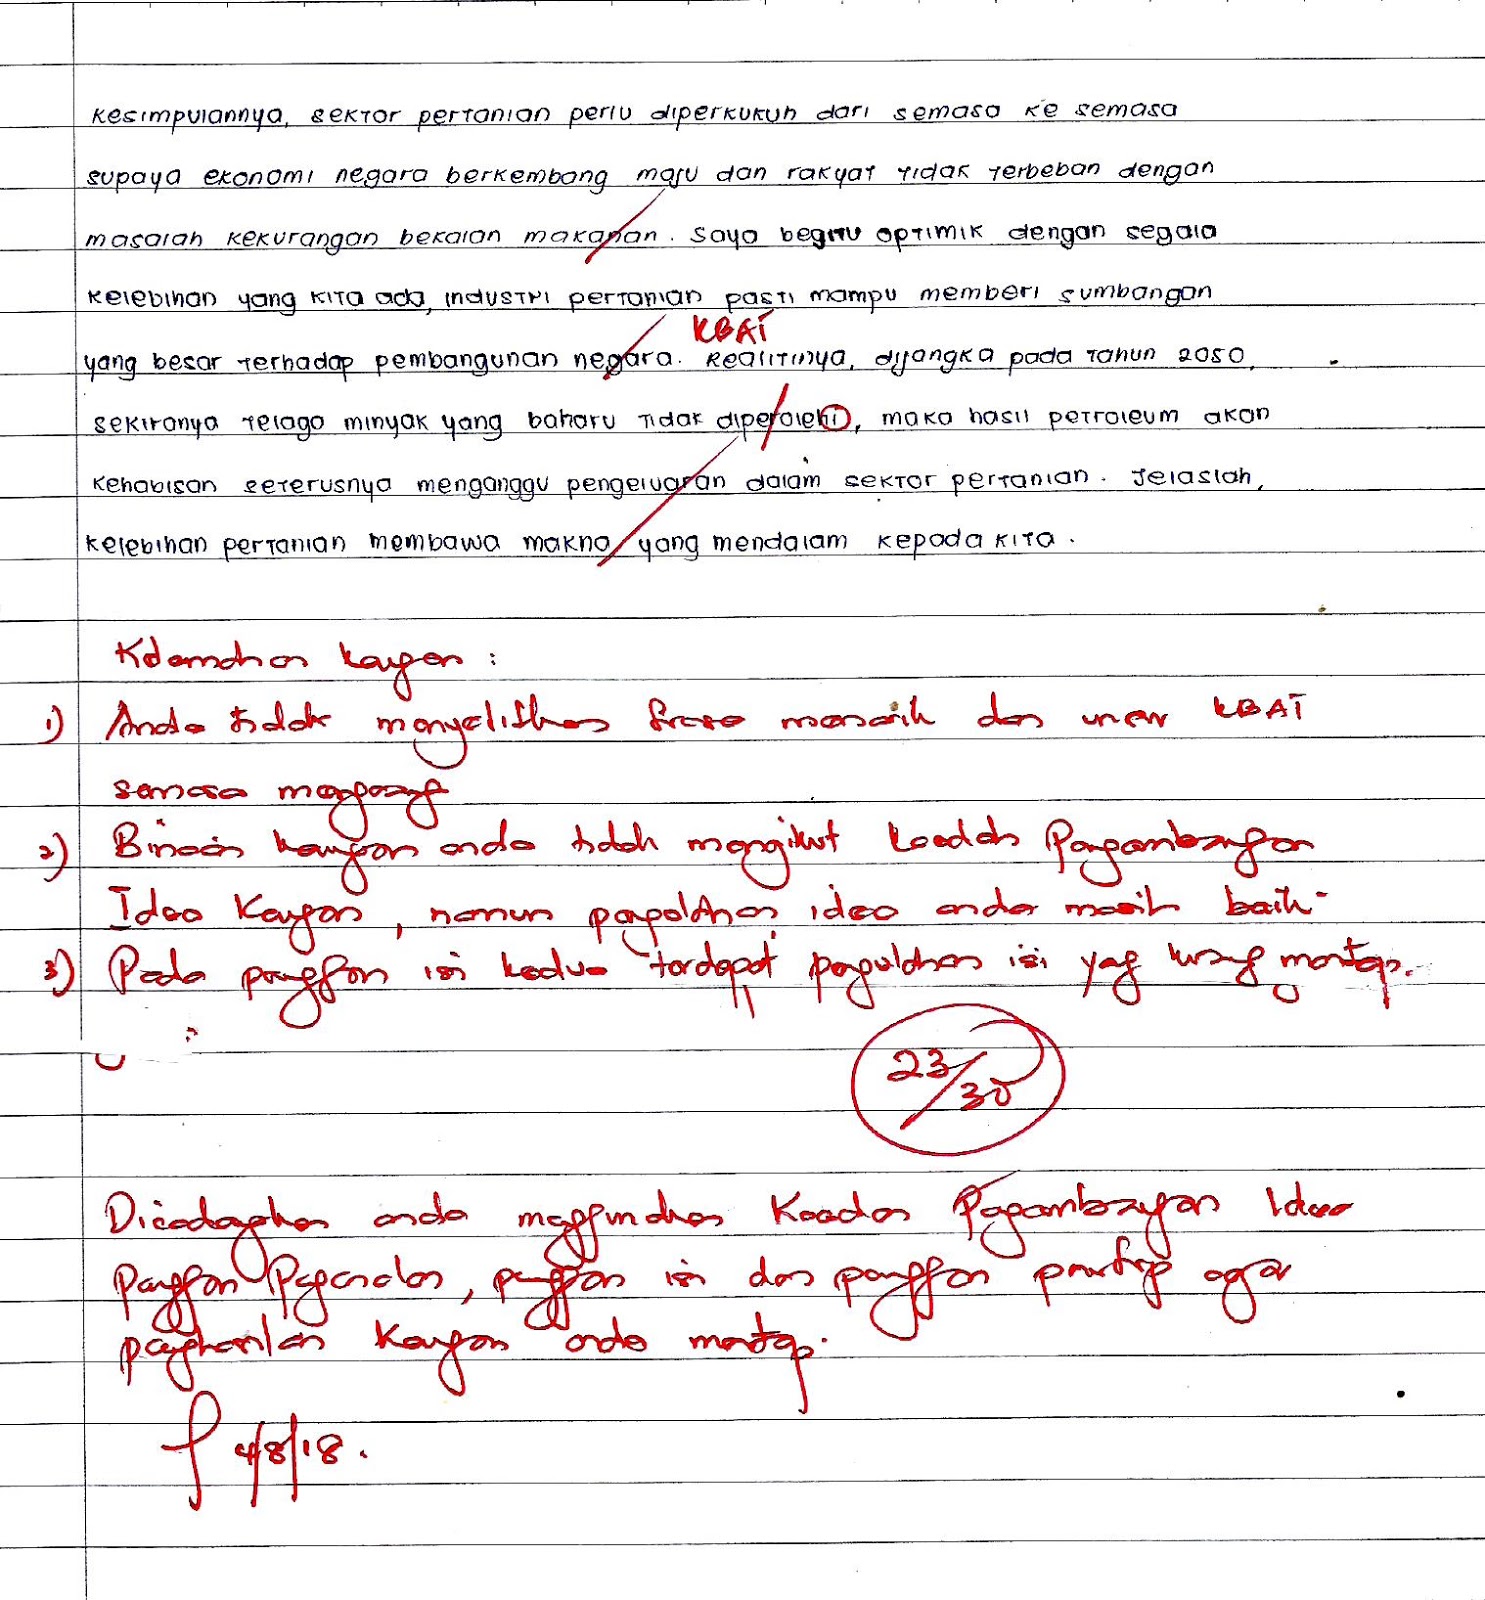 Kesimpulannya, sektor pertanian perlu diperkukuh dari semasa ke semasa
supaya ekonomi negara berkembang maju dan rakyat tidak terbeban dengan
masalah kekurangan bekalan makanan. Saya begitu optimik dengan segala
kelebihan yang kita ada, industri pertanian pasti mampu memberi sumbangan
KBAT
yang besar terhadap pembangunan negara. Realitinya, dijangka pada tahun 2050,
sekiranya telaga minyak yang baharu tidak diperolehi, maka hasil petroleum akan
kehabisan seterusnya menganggu pengeluaran dalam sektor pertanian. Jelaslah,
kelebihan pertanian membawa makna yang mendalam kepada kita.
Kelemahan karangan :
1) Anda tidak menyelitkan frasa menarik dan unsur KBAT
semasa mengarang
2) Binaan karangan anda tidak mengikut kaedah Pengembangan
Idea Karangan, namun pengolahan idea anda masih baik.
3) Pada perenggan isi kedua terdapat pengolahan isi yang kurang mantap.
23/30
Dicadangkan anda menggunakan Kaedah Pengembangan Idea
Perenggan Pengenalan, perenggan isi dan perenggan penutup agar
penghasilan karangan anda mantap.
4/8/18.